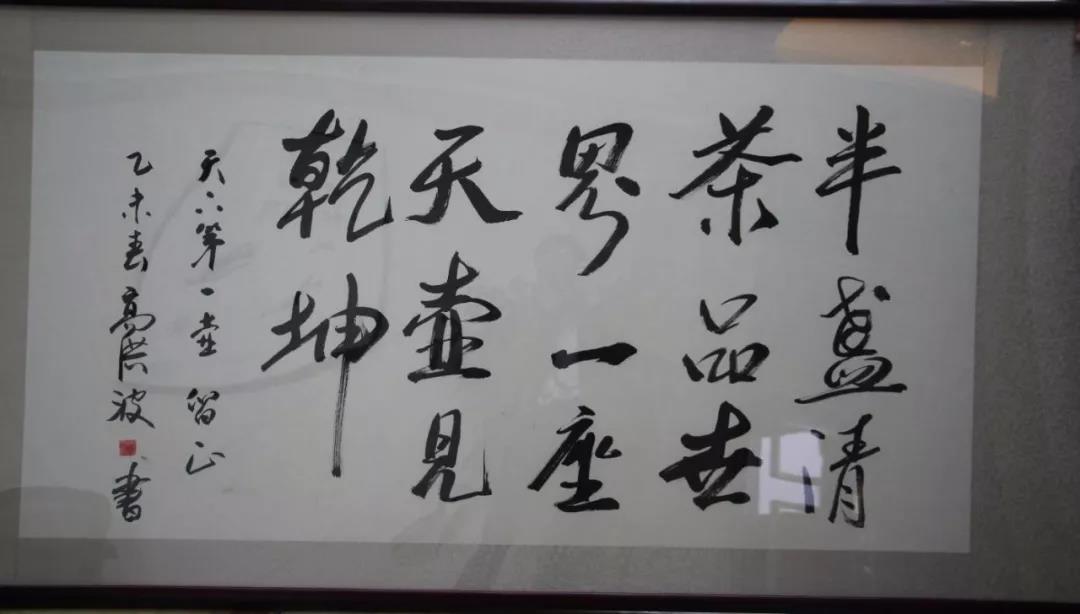 半盏清
茶品世
界一座
天壶见
乾坤
天下第一壶留正
乙未春高洪波书